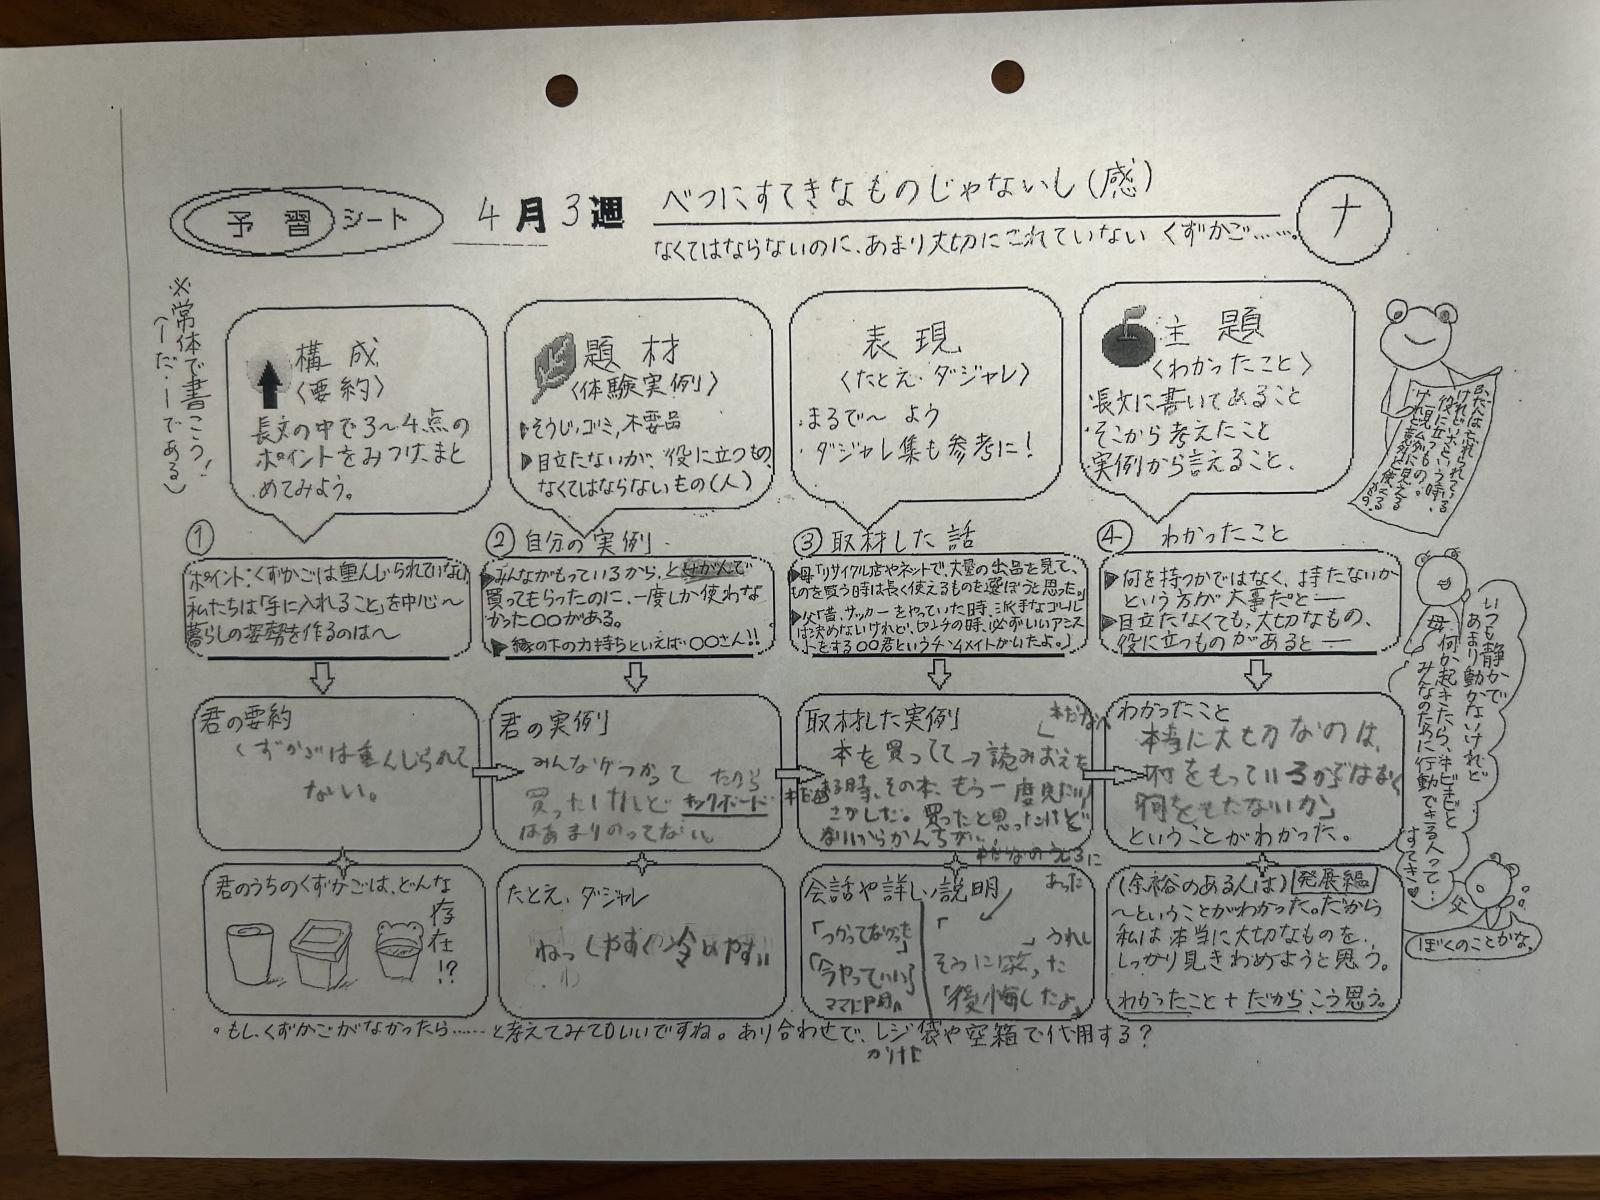 予習シート
4月3週
べつにすてきなものじゃないし(感)
なくてはならないのに、あまり大切にされていない くずかご……。
ナ
※常体で書こう!
(〜だ・〜である)
構成
〈要約〉
長文の中で3〜4点の
ポイントをみつけ、まと
めてみよう。
題材
〈体験実例〉
そうじ、ゴミ、不要品
目立たないが、役に立つもの、
なくてはならないもの(人)
表現
〈たとえ・ダジャレ〉
・まるで〜 よう
・ダジャレ集も参考に!
主題
〈わかったこと〉
・長文に書いてあること
・そこから考えたこと
実例から言えること、
①
ポイント:くずかごは重んじられていない
私たちは「手に入れること」を中心〜
暮らしの姿勢を作るのは〜
② 自分の実例
みんながもっているから、と
買ってもらったのに、一度しか使わな
かった○○がある。
縁の下の力持ちといえば○○さん!!
③ 取材した話
母「リサイクル店やネットで、大量の出品を見て、
ものを買う時は長く使えるものを選ぼうと思った。」
父「昔、サッカーをやっていた時、派手なゴール
は決めないけれど、ピンチの時、必ずいいアシス
トをする○○君というチームメイトがいたよ。」
④ わかったこと
何を持つかではなく、持たないか
という方が大事だと―
目立たなくても、大切なもの、
役に立つものがあると―
君の要約
くずかごは重んじられて
ない。
君の実例
みんながつかって たから
買ったけれど キックボード
はあまりのってない。
取材した実例
本を買ってて→読みおえた
ある時、その本、もう一度見たい
さがした。買ったと思ったけど
ないからかんちがい
本だなのうしろに
あった
わかったこと
本当に大切なのは、
「何をもっているかではなく
何をもたないか」
ということがわかった。
君のうちのくずかごは、どんな
存在!?
たとえ、ダジャレ
ねっしやすく冷めやすい
会話や詳しい説明
「つかってなかった」
「今やっていい」
ママに
「 」うれし
そうに笑った
「後悔したよ」
(余裕のある人は) 発展編
〜ということがわかった。だから
私は本当に大切なものを、
しっかり見きわめようと思う。
わかったこと + だから、こう思う。
いつも静かで
あまり動かないけれど
何か起きたら、キビキビと
みんなのために行動できる人って…
すてき♥
母
父
ぼくのことかな。
。もし、くずかごがなかったら……と考えてみてもいいですね。あり合わせで、レジ袋や空箱で代用する?